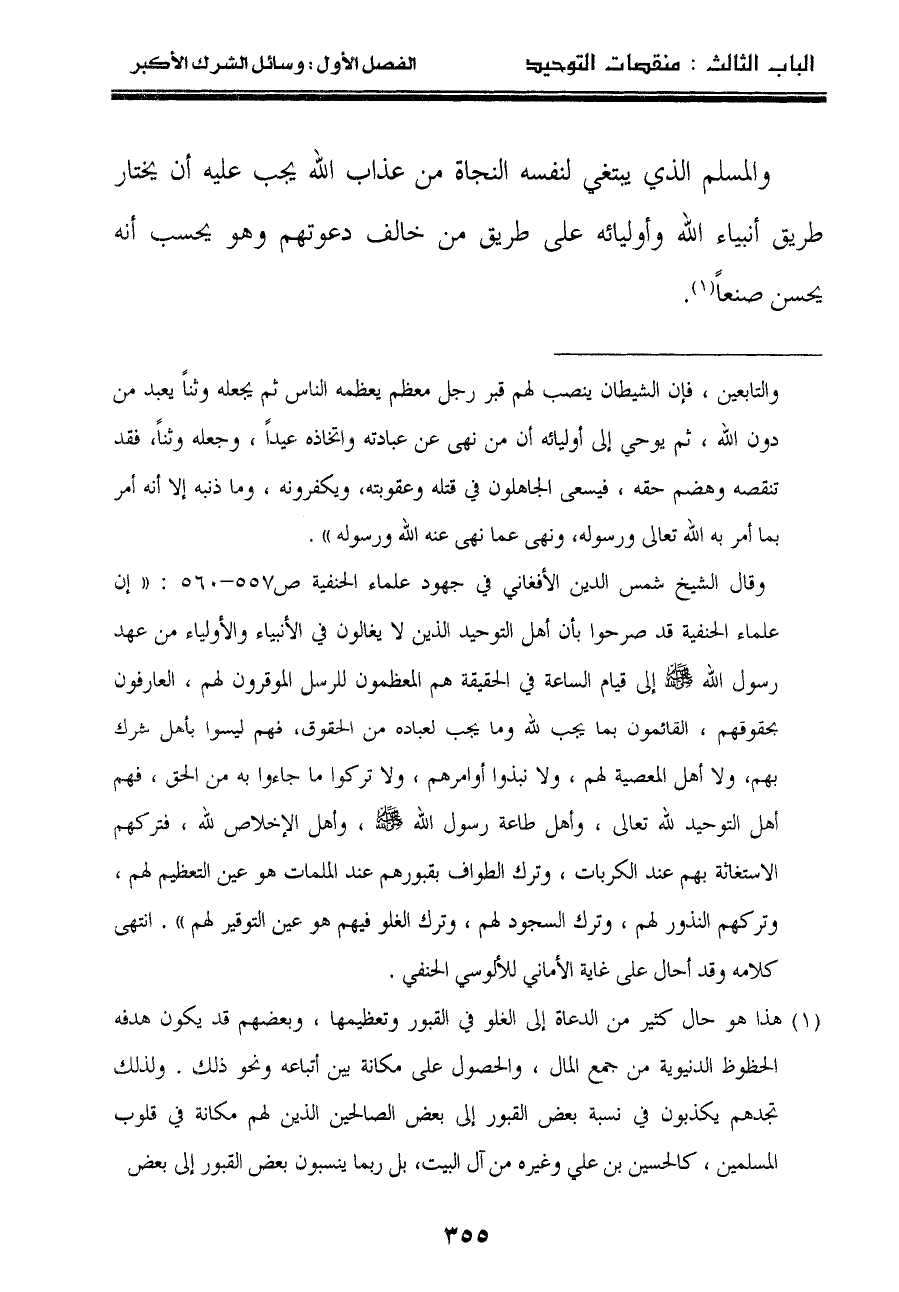 الباب الثالث : منقصات التوحيد الفصل الأول : وسائل الشرك الأكبر
والمسلم الذي يبتغي لنفسه النجاة من عذاب الله يجب عليه أن يختار
طريق أنبياء الله وأوليائه على طريق من خالف دعوتهم وهو يحسب أنه
يحسن صنعاً(١).
والتابعين ، فإن الشيطان ينصب لهم قبر رجل معظم يعظمه الناس ثم يجعله وثناً يعبد من
دون الله ، ثم يوحي إلى أوليائه أن من نهى عن عبادته واتخاذه عيداً ، وجعله وثناً، فقد
تنقصه وهضم حقه ، فيسعى الجاهلون في قتله وعقوبته، ويكفرونه ، وما ذنبه إلا أنه أمر
بما أمر به الله تعالى ورسوله، ونهى عما نهى عنه الله ورسوله » .
وقال الشيخ شمس الدين الأفغاني في جهود علماء الحنفية ص٥٥٧-٥٦٠ : « إن
علماء الحنفية قد صرحوا بأن أهل التوحيد الذين لا يغالون في الأنبياء والأولياء من عهد
رسول الله ﷺ إلى قيام الساعة في الحقيقة هم المعظمون للرسل الموقرون لهم ، العارفون
بحقوقهم ، القائمون بما يجب لله وما يجب لعباده من الحقوق، فهم ليسوا بأهل شرك
بهم، ولا أهل المعصية لهم ، ولا نبذوا أوامرهم ، ولا تركوا ما جاءوا به من الحق ، فهم
أهل التوحيد لله تعالى ، وأهل طاعة رسول الله ﷺ ، وأهل الإخلاص لله ، فتركهم
الاستغاثة بهم عند الكربات ، وترك الطواف بقبورهم عند الملمات هو عين التعظيم لهم ،
وتركهم النذور لهم ، وترك السجود لهم ، وترك الغلو فيهم هو عين التوقير لهم » . انتهى
كلامه وقد أحال على غاية الأماني للألوسي الحنفي .
(١) هذا هو حال كثير من الدعاة إلى الغلو في القبور وتعظيمها ، وبعضهم قد يكون هدفه
الحظوظ الدنيوية من جمع المال ، والحصول على مكانة بين أتباعه ونحو ذلك . ولذلك
تجدهم يكذبون في نسبة بعض القبور إلى بعض الصالحين الذين لهم مكانة في قلوب
المسلمين ، كالحسين بن علي وغيره من آل البيت، بل ربما ينسبون بعض القبور إلى بعض
٣٥٥